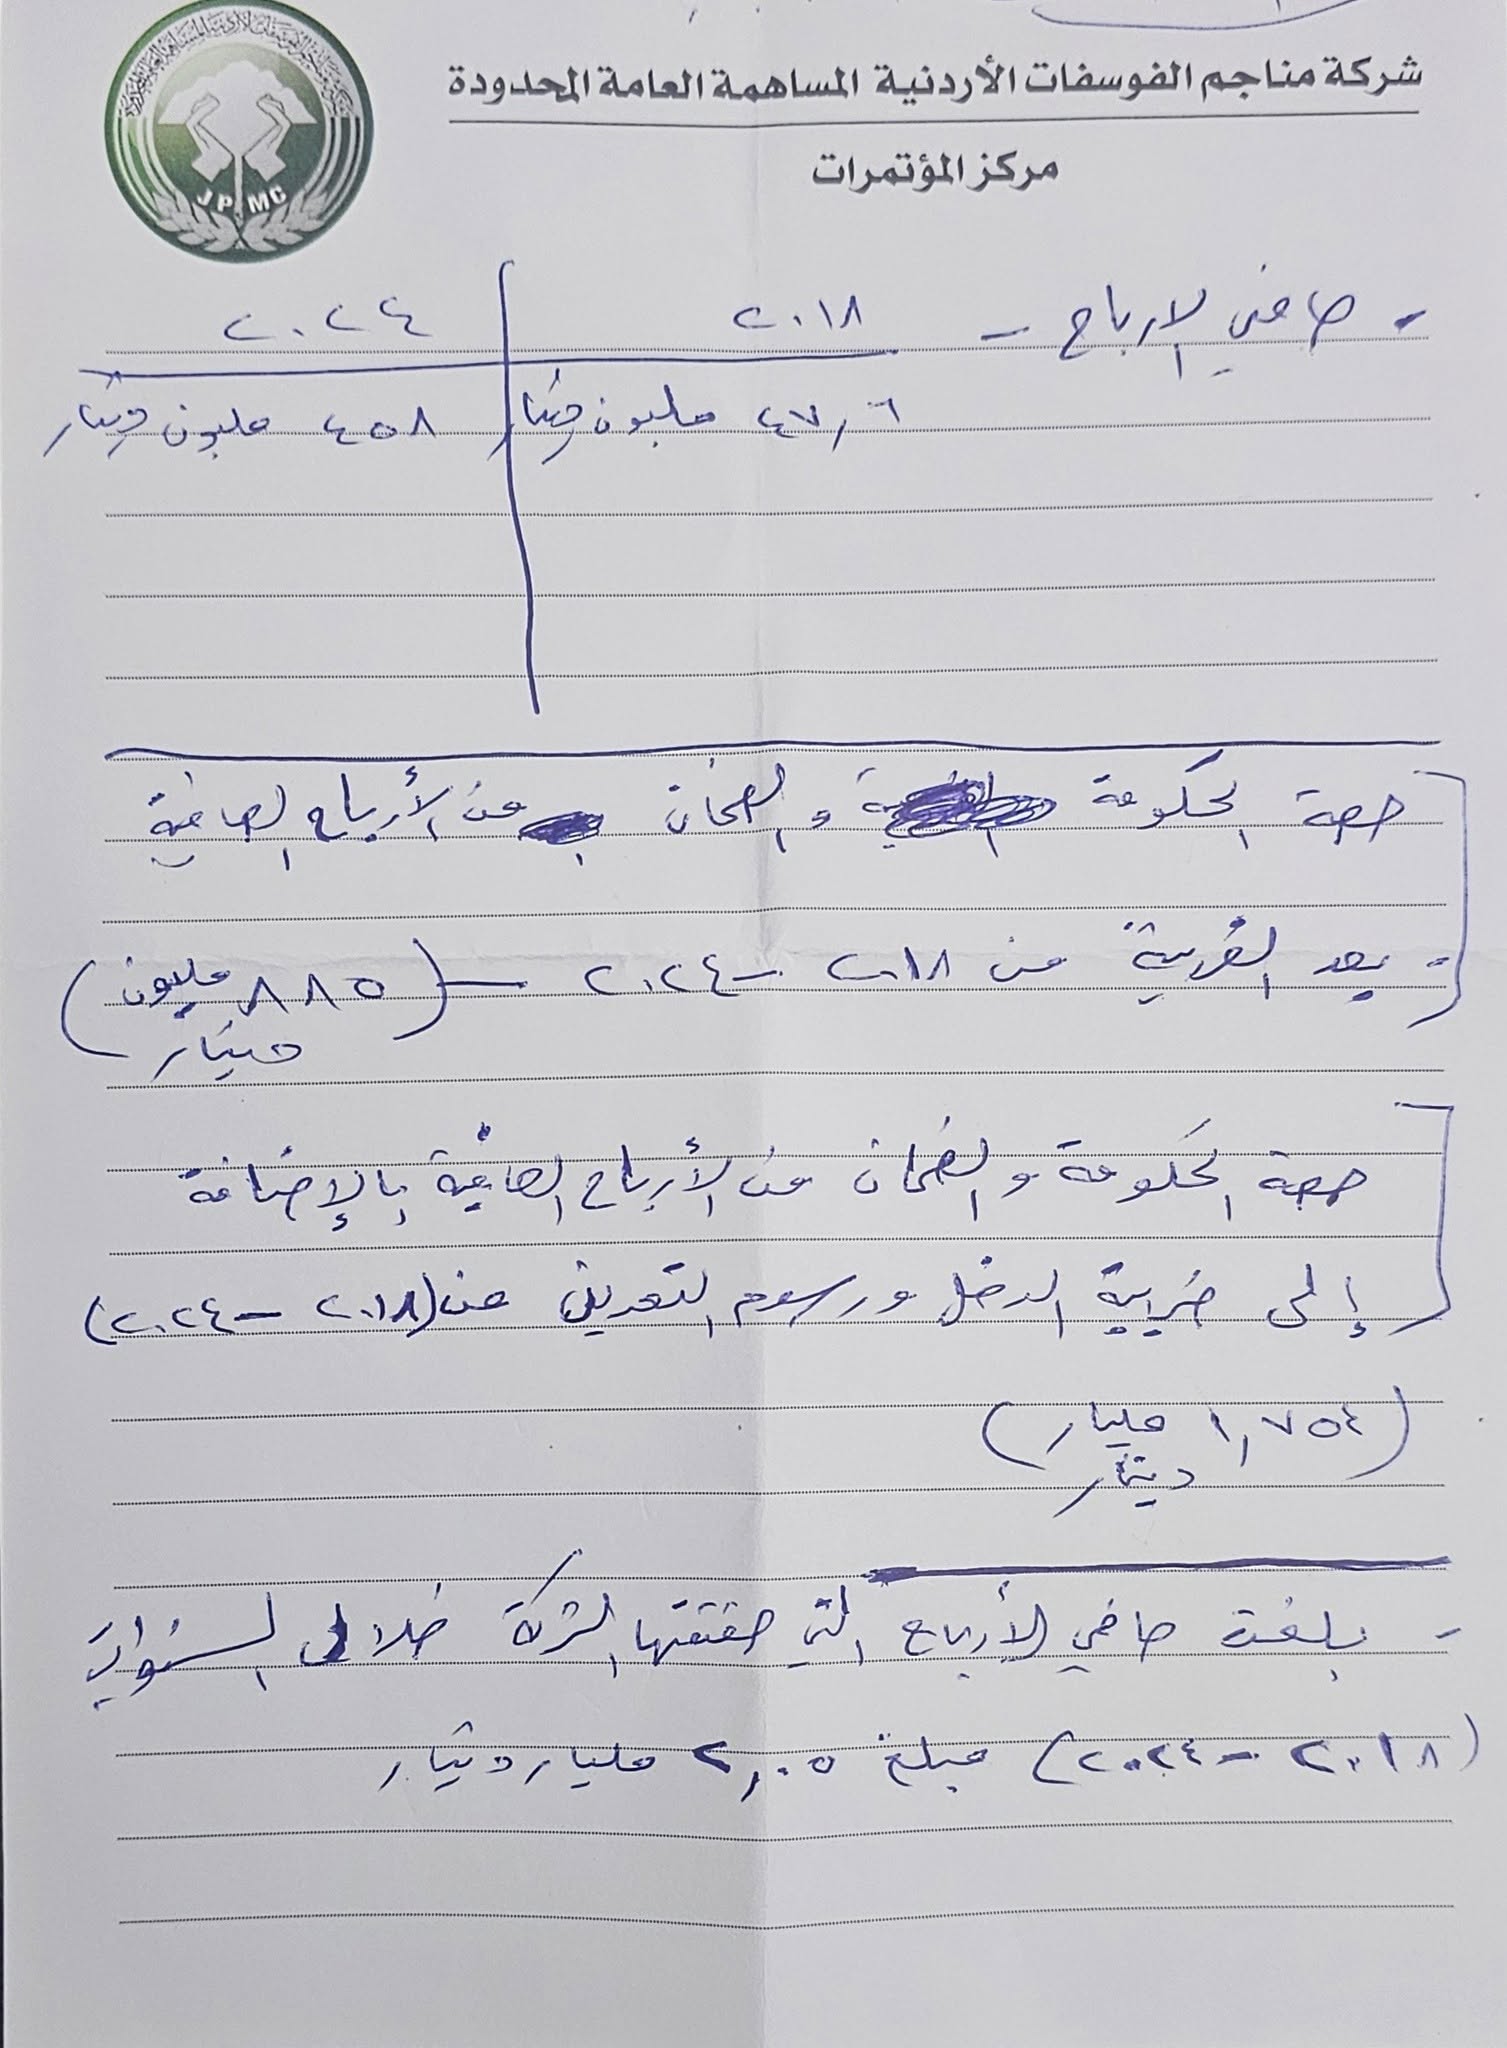 شركة مناجم الفوسفات الأردنية المساهمة العامة المحدودة
مركز المؤتمرات
JPMC
- صافي الارباح - ٢٠١٨ ٢٠٢٤
٤٧,٦ مليون دينار ٤٥٨ مليون دينار
حصة الحكومة والضمان من الأرباح الصافية
- بعد الضريبة من ٢٠١٨ - ٢٠٢٤ - (٨٨٥ مليون
دينار)
حصة الحكومة والضمان من الأرباح الصافية بالإضافة
إلى ضريبة الدخل ورسوم التعدين من (٢٠١٨ - ٢٠٢٤)
(١,٧٥٤ مليار
دينار)
- بلغت صافي الأرباح التي حققتها الشركة خلال السنوات
(٢٠١٨ - ٢٠٢٤) مبلغ ٢,٠٥ مليار دينار